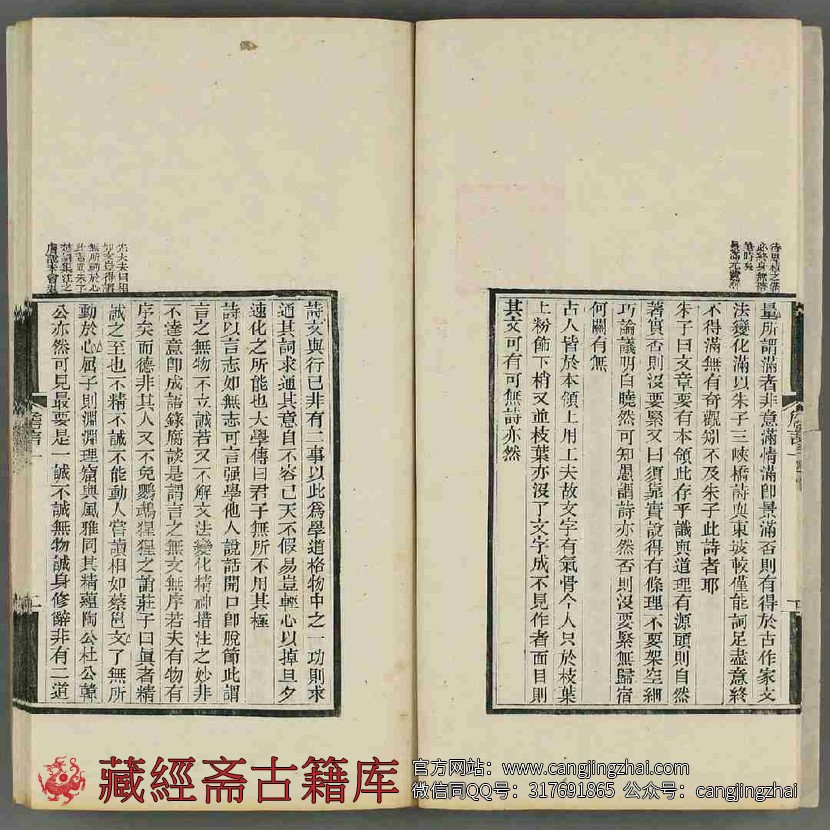 量所謂滿者非意滿情滿即景滿否則有得於古作家文
法變化滿以朱子三峽橋詩與東坡較僅能詞足盡意終
不得滿無有奇觀矧不及朱子此詩者耶
朱子曰文章要有本領此存乎識與道理有源頭則自然
著實否則沒要緊又曰須靠實說得有條理不要架空細
巧論議明白曉然可知愚謂詩亦然否則沒要緊無歸宿
何關有無
古人皆於本領上用工夫故文字有氣骨今人只於枝葉
上粉飾下稍又並枝葉亦沒了文字成不見作者面目則
其文可有可無詩亦然
詩文與行己非有二事以此為學道格物中之一功則求
通其詞求通其意自不容已天不假易豈輕心以掉旦夕
速化之所能也大學傳曰君子無所不用其極
詩以言志如無志可言强學他人說話開口即脫節此謂
言之無物不立誠若又不解文法變化精神措注之妙非
不達意即成語錄腐談是謂言之無文無序若夫有物有
序矣而德非其人又不免鸚鵡猩猩之誚莊子曰真者精
誠之至也不精不誠不能動人嘗讀相如蔡邕文了無所
動於心屈子則淵淵理窟與風雅同其精蘊陶公杜公韓
公亦然可見最要是一誠不誠無物誠身修辭非有二道
藏經斋古籍库
官方网站：www.cangjingzhai.com
微信同QQ号：317691865 公众号：cangjingzhai